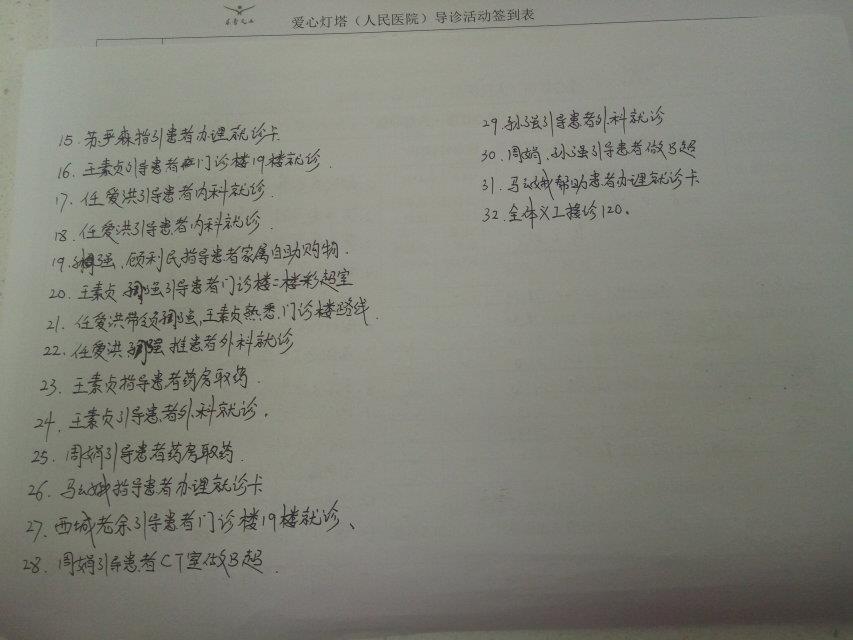 爱心灯塔（人民医院）导诊活动签到表
15. 苏乎森指引患者办理就诊卡
16. 王素贞引导患者门诊楼19楼就诊.
17. 任爱洪引导患者内科就诊.
18. 任爱洪引导患者内科就诊.
19. 强、顾利民指导患者家属自助购物.
20. 王素贞 强引导患者门诊楼二楼彩超室
21. 任爱洪带领 强,王素贞熟悉,门诊楼路线.
22. 任爱洪 强推患者外科就诊
23. 王素贞指导患者药房取药.
24. 王素贞引导患者外科就诊.
25. 周娟引导患者药房取药.
26. 马娥指导患者办理就诊卡
27. 西城老余引导患者门诊楼19楼就诊、
28. 周娟引导患者CT室做B超.
29. 孙强引导患者外科就诊
30. 周娟、孙强引导患者做B超
31. 马娥帮助患者办理就诊卡
32. 全体义工接诊120。